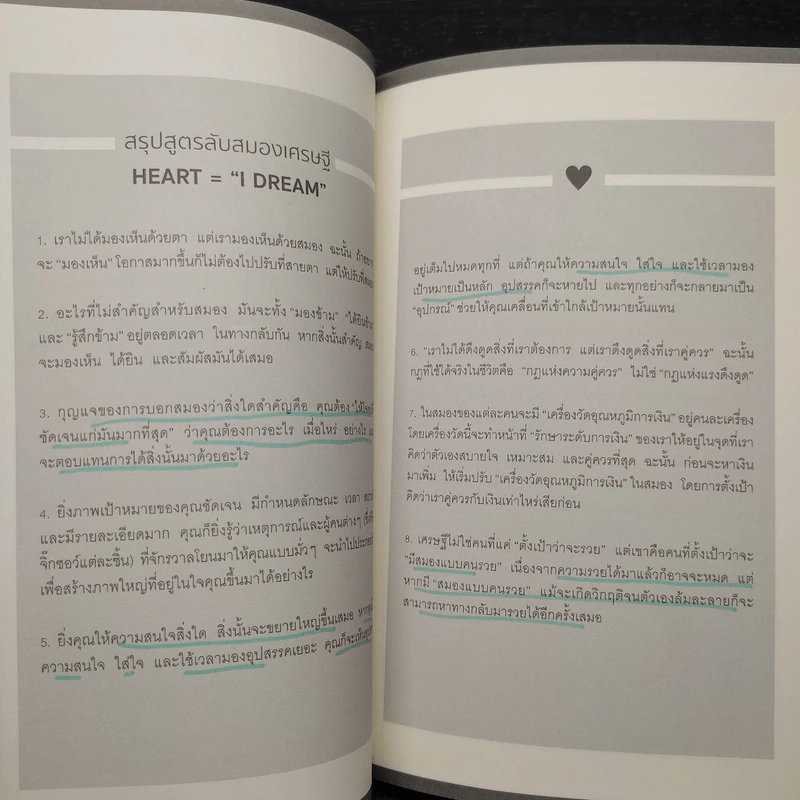 สรุปสูตรลับสมองเศรษฐี
HEART = “I DREAM”
1. เราไม่ได้มองเห็นด้วยตา แต่เรามองเห็นด้วยสมอง ฉะนั้น
จะ “มองเห็น” โอกาสมากขึ้นก็ไม่ต้องไปปรับที่สายตา แต่ให้ปรับที่
2. อะไรที่ไม่สำคัญสำหรับสมอง มันจะทั้ง “มองข้าม”
และ “รู้สึกข้าม” อยู่ตลอดเวลา ในทางกลับกัน หากสิ่งนั้นสำคัญ
จะมองเห็น ได้ยิน และสัมผัสมันได้เสมอ
3. กุญแจของการบอกสมองว่าสิ่งใดสำคัญคือ คุณต้อง
ชัดเจนแก่มันมากที่สุด” ว่าคุณต้องการอะไร เมื่อไหร่ อย่างไร
จะตอบแทนการได้สิ่งนั้นมาด้วยอะไร
4. ยิ่งภาพเป้าหมายของคุณชัดเจน มีกำหนดลักษณะ เวลา
และมีรายละเอียดมาก คุณก็ยิ่งรู้ว่าเหตุการณ์และผู้คนต่างๆ
จิ๊กซอว์แต่ละชิ้น) ที่จักรวาลโยนมาให้คุณแบบมั่วๆ จะนำไป
เพื่อสร้างภาพใหญ่ที่อยู่ในใจคุณขึ้นมาได้อย่างไร
5. ยิ่งคุณให้ความสนใจสิ่งใด สิ่งนั้นจะขยายใหญ่ขึ้นเสมอ
ความสนใจ ใส่ใจ และใช้เวลามองอุปสรรคเยอะ คุณก็จะเห็น
อยู่เต็มไปหมดทุกที่ แต่ถ้าคุณให้ความสนใจ ใส่ใจ และใช้เวลามอง
เป้าหมายเป็นหลัก อุปสรรคก็จะหายไป และทุกอย่างก็จะกลายมาเป็น
“อุปกรณ์” ช่วยให้คุณเคลื่อนที่เข้าใกล้เป้าหมายนั้นแทน
6. “เราไม่ได้ดึงดูดสิ่งที่เราต้องการ แต่เราดึงดูดสิ่งที่เราคู่ควร” ฉะนั้น
กฎที่ใช้ได้จริงในชีวิตคือ “กฎแห่งความคู่ควร” ไม่ใช่ “กฎแห่งแรงดึงดูด”
7. ในสมองของแต่ละคนจะมี “เครื่องวัดอุณหภูมิการเงิน” อยู่คนละเครื่อง
โดยเครื่องวัดนี้จะทำหน้าที่ “รักษาระดับการเงิน” ของเราให้อยู่ในจุดที่เรา
คิดว่าตัวเองสบายใจ เหมาะสม และคู่ควรที่สุด ฉะนั้น ก่อนจะหาเงิน
มาเพิ่ม ให้เริ่มปรับ “เครื่องวัดอุณหภูมิการเงิน” ในสมอง โดยการตั้งเป้า
คิดว่าเราคู่ควรกับเงินเท่าไหร่เสียก่อน
8. เศรษฐีไม่ใช่คนที่แค่ “ตั้งเป้าว่าจะรวย” แต่เขาคือคนที่ตั้งเป้าว่าจะ
“มีสมองแบบคนรวย” เนื่องจากความรวยได้มาแล้วก็อาจจะหมด แต่
หากมี “สมองแบบคนรวย” แม้จะเกิดวิกฤติจนตัวเองล้มละลายก็จะ
สามารถหาทางกลับมารวยได้อีกครั้งเสมอ